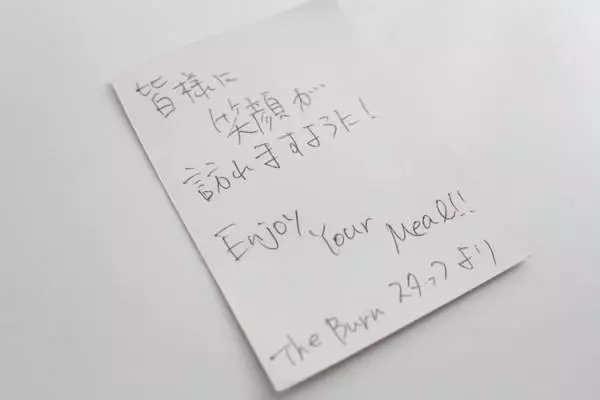 皆様に
笑顔が
訪れますように!
Enjoy Your Meal!!
The Burn スタッフより